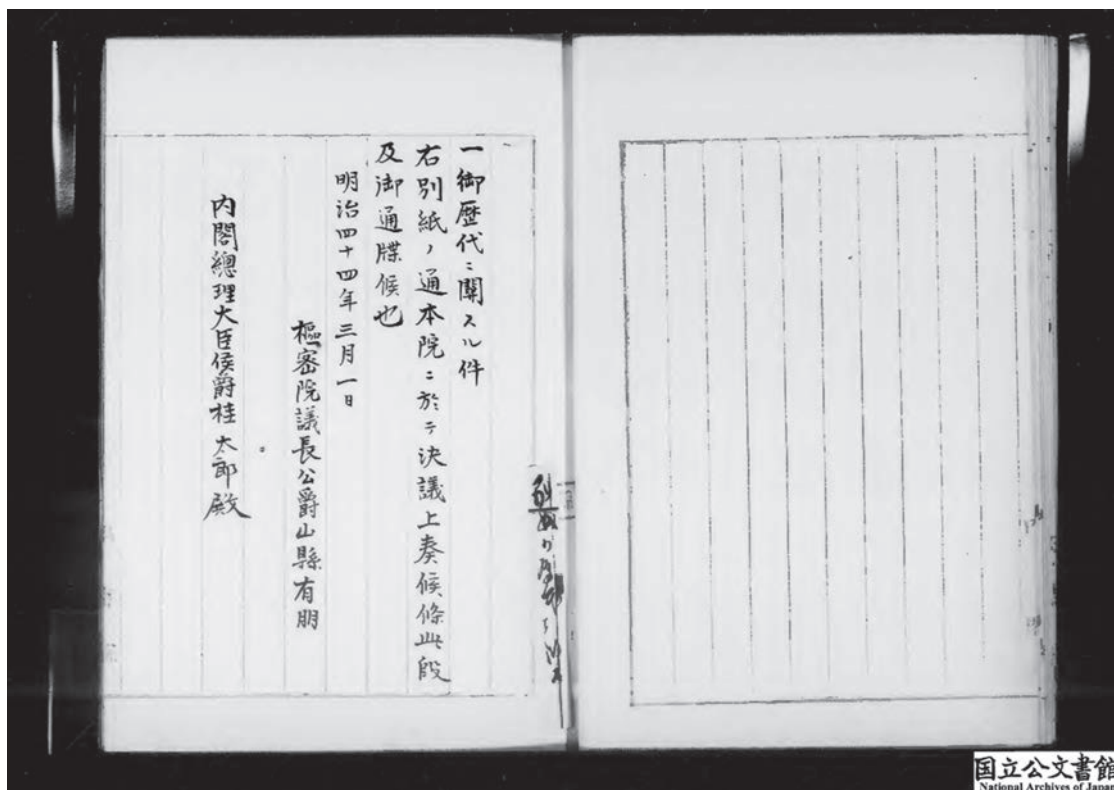 一御歴代ニ關スル件
右別紙ノ通本院ニ於テ決議上奏候條此段
及御通牒候也
明治四十四年三月一日
樞密院議長公爵山縣有朋
内閣總理大臣侯爵桂太郎殿
国立公文書館
National Archives of Japan